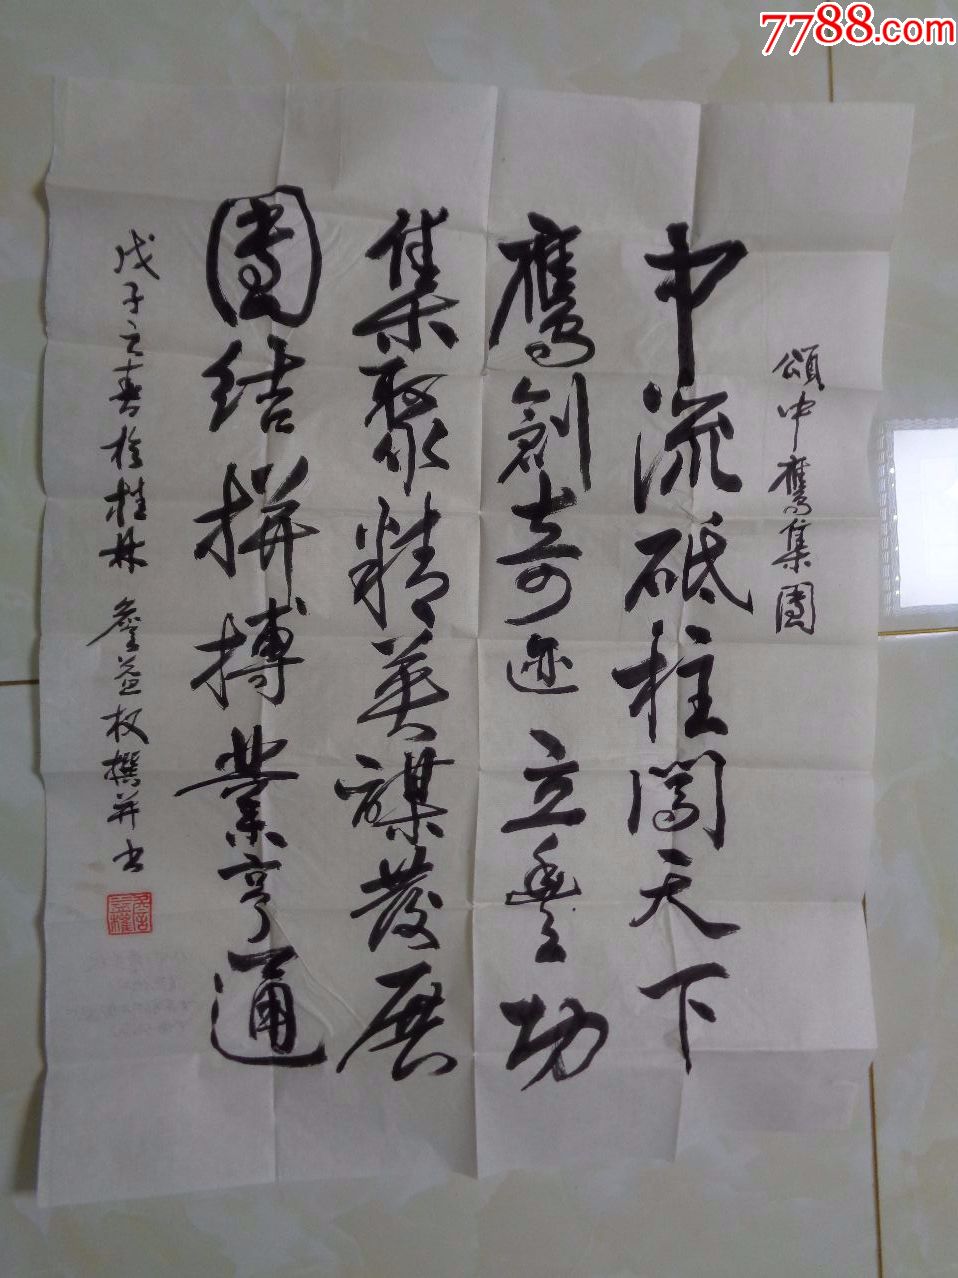 7788.com
頌中鷹集團
中流砥柱闖天下
鷹創奇迹立豐功
集聚精英謀發展
團结拼搏業亨通
戊子之春於桂林 詹益权撰并书